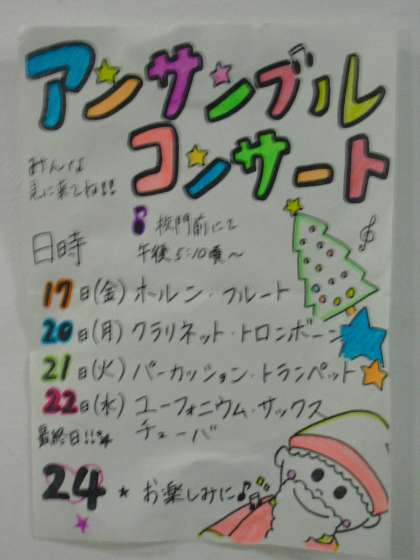 アンサンブル
コンサート
みんな
見に来てね!!
校門前にて
日時
午後5:10頃〜
17日(金)ホルン・フルート
20日(月)クラリネット・トロンボーン
21日(火)パーカッション・トランペット
22日(水)ユーフォニウム・サックス
チューバ
最終日!!
24★お楽しみに♪♫